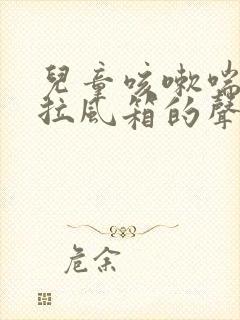 兒童咳嗽喘
拉風箱的聲
危余